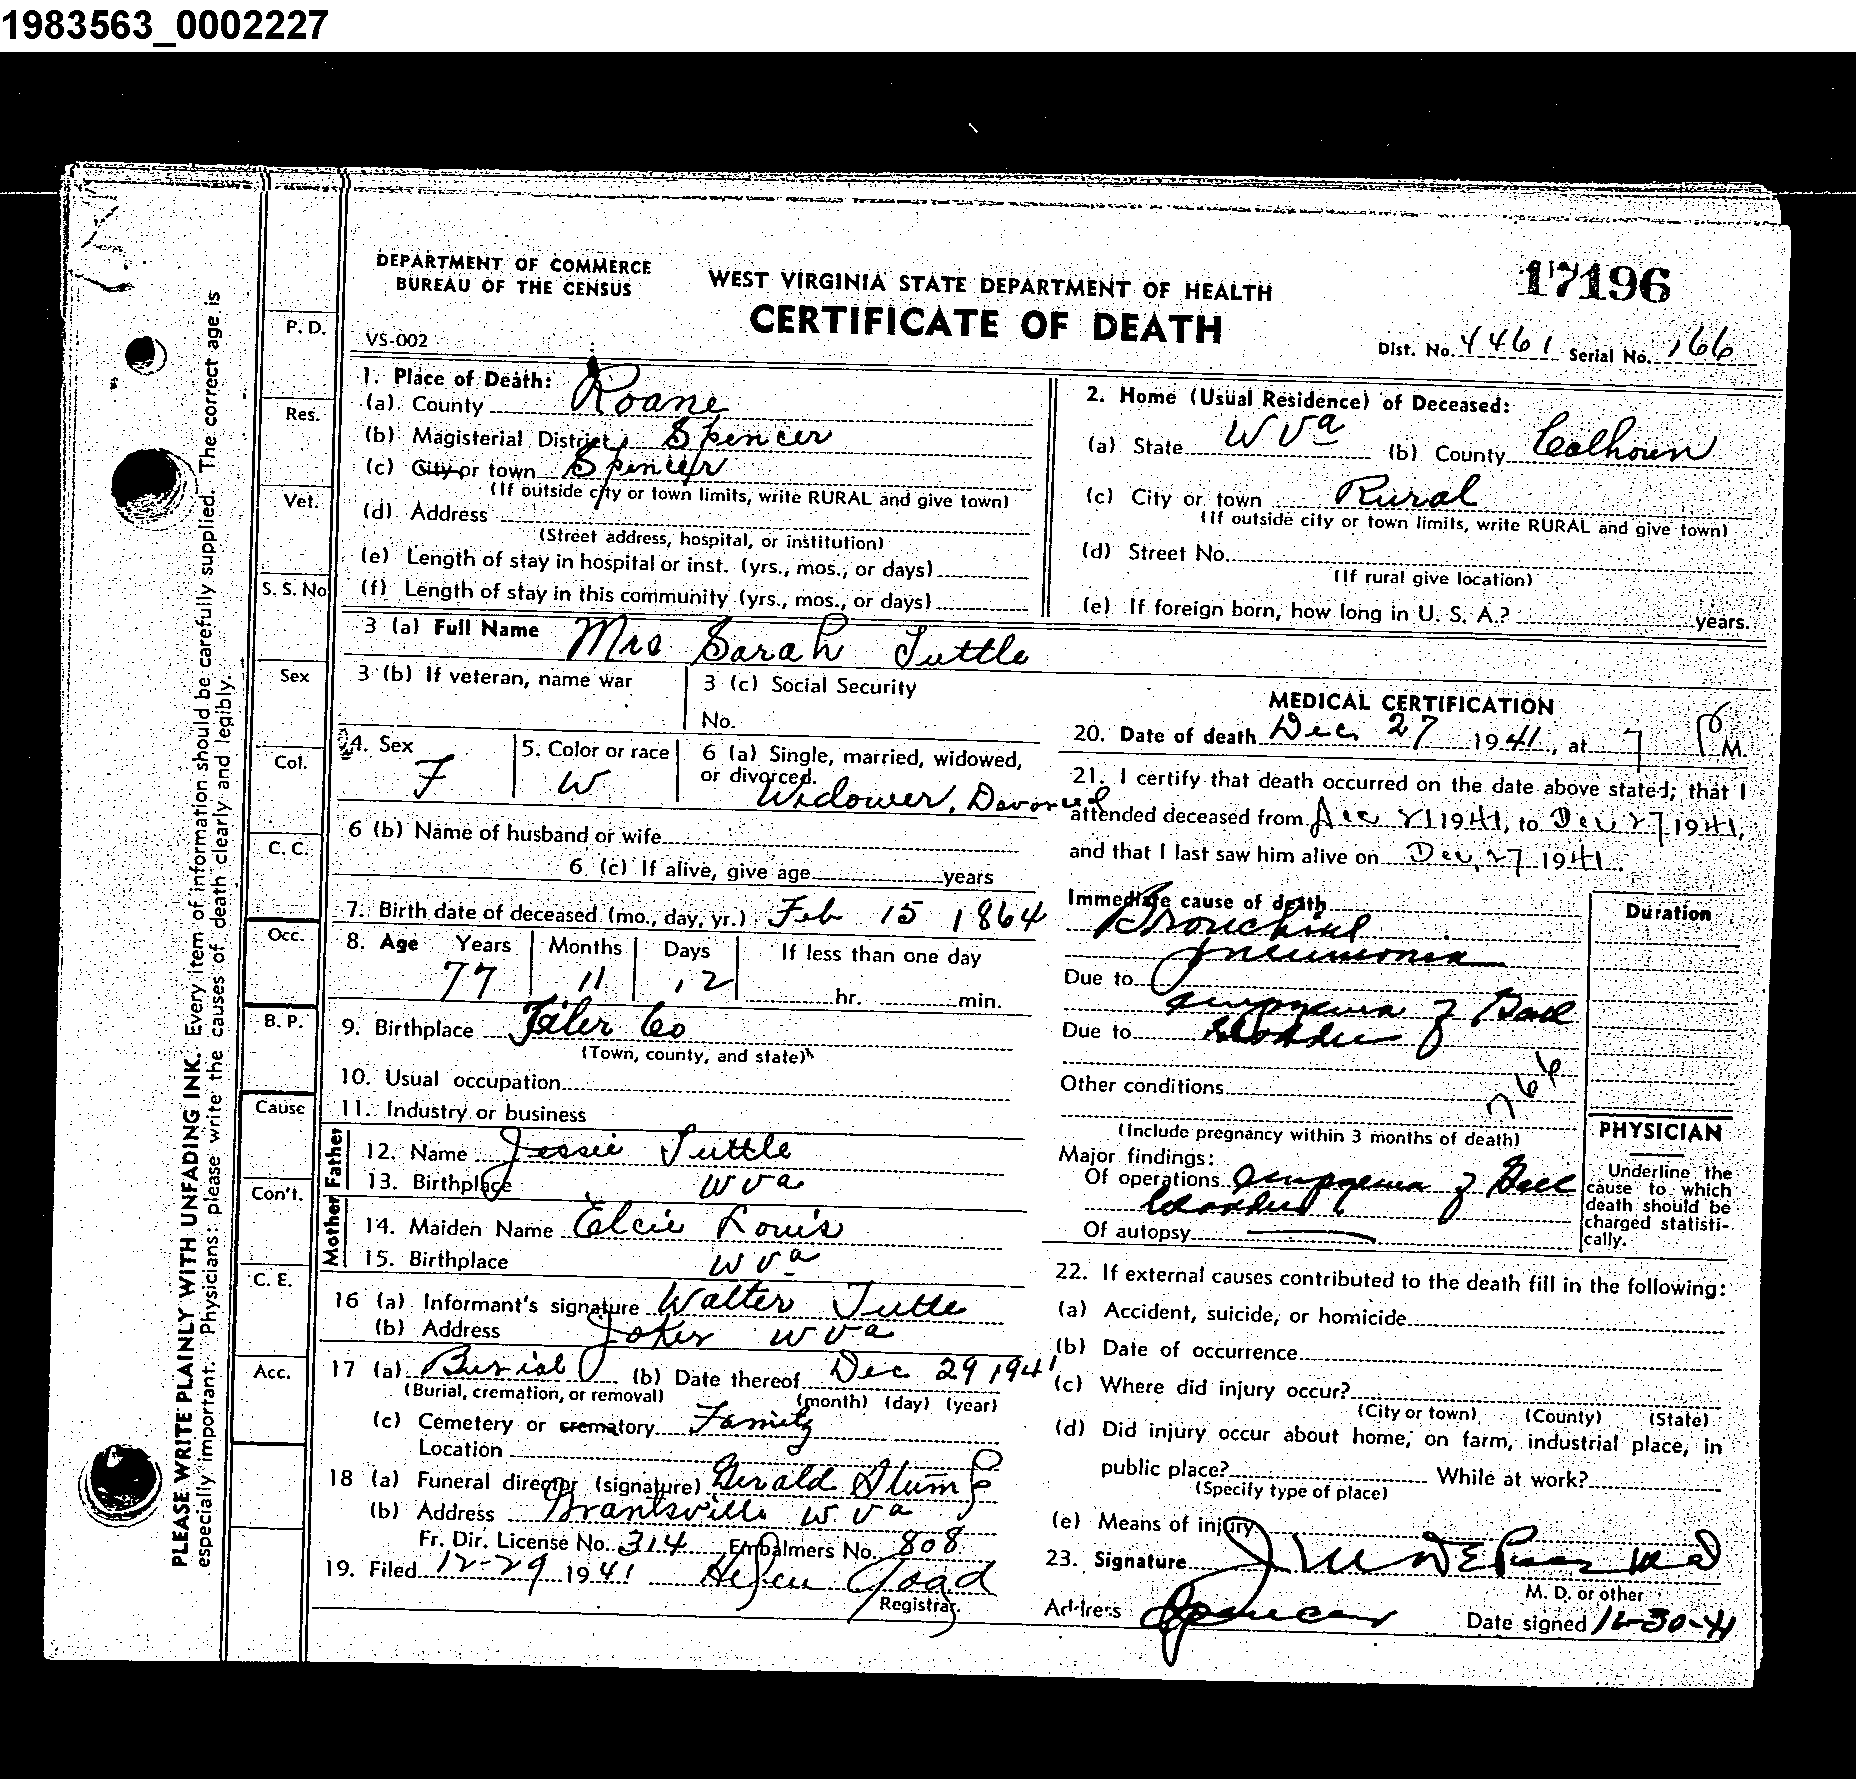 1983563_0002227
DEPARTMENT OF COMMERCE
BUREAU OF THE CENSUS
VS-002
WEST VIRGINIA STATE DEPARTMENT OF HEALTH
CERTIFICATE OF DEATH
17196
Dist. No. 4461 Serial No. 166
PLEASE WRITE PLAINLY WITH UNFADING INK. Every item of information should be carefully supplied. The correct age is
especially important. Physicians: please write the causes of death clearly and legibly.
P. D.
Res.
Vet.
S. S. No
Sex
Col.
C. C.
Occ.
B. P.
Cause
Con't.
C. E.
Acc.
1. Place of Death:
(a) County Roane
(b) Magisterial District Spencer
(c) City or town Spencer
(If outside city or town limits, write RURAL and give town)
(d) Address
(Street address, hospital, or institution)
(e) Length of stay in hospital or inst. (yrs., mos., or days)
(f) Length of stay in this community (yrs., mos., or days)
2. Home (Usual Residence) of Deceased:
(a) State W Va (b) County Calhoun
(c) City or town Rural
(If outside city or town limits, write RURAL and give town)
(d) Street No.
(If rural give location)
(e) If foreign born, how long in U. S. A.? years.
3 (a) Full Name Mrs Sarah Tuttle
3 (b) If veteran, name war
3 (c) Social Security
No.
4. Sex F
5. Color or race W
6 (a) Single, married, widowed,
or divorced. Widower, Davorced
6 (b) Name of husband or wife
6 (c) If alive, give age years
7. Birth date of deceased (mo., day, yr.) Feb 15 1864
8. Age Years Months Days If less than one day
77 11 12 hr. min.
9. Birthplace Tiler Co
(Town, county, and state)
10. Usual occupation
11. Industry or business
Father
12. Name Jessie Tuttle
13. Birthplace W Va
Mother
14. Maiden Name Elcie Louis
15. Birthplace W Va
16 (a) Informant's signature Walter Tutle
(b) Address Joker W Va
17 (a) Burial (b) Date thereof Dec 29 1941
(Burial, cremation, or removal) (month) (day) (year)
(c) Cemetery or crematory Family
Location
18 (a) Funeral director (signature) Gerald Stump
(b) Address Grantsville W Va
Fr. Dir. License No. 314 Embalmers No. 808
19. Filed 12-29 1941 Helen Goad
Registrar
MEDICAL CERTIFICATION
20. Date of death Dec 27 1941, at 7 P M.
21. I certify that death occurred on the date above stated; that I
attended deceased from Dec 21 1941, to Dec 27 1941,
and that I last saw him alive on Dec, 27 1941.
Immediate cause of death
Bronchial
pneumonia
Due to
empyema of Gall
Due to bladder
Other conditions
766
(Include pregnancy within 3 months of death)
Major findings:
Of operations empyema of Gall
bladder
Of autopsy
Duration
PHYSICIAN
Underline the
cause to which
death should be
charged statisti-
cally.
22. If external causes contributed to the death fill in the following:
(a) Accident, suicide, or homicide
(b) Date of occurrence
(c) Where did injury occur?
(City or town) (County) (State)
(d) Did injury occur about home, on farm, industrial place, in
public place? While at work?
(Specify type of place)
(e) Means of injury
23. Signature M D
M. D. or other
Address Spencer Date signed 12-30-41